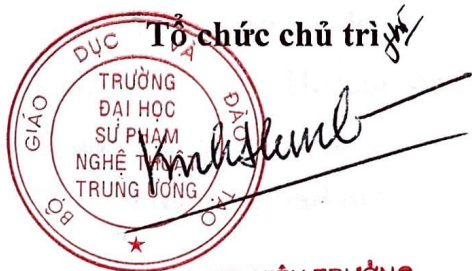 Tổ chức chủ trì
BỘ GIÁO DỤC VÀ ĐÀO TẠO
TRƯỜNG
ĐẠI HỌC
SƯ PHẠM
NGHỆ THUẬT
TRUNG ƯƠNG
TRƯỞNG